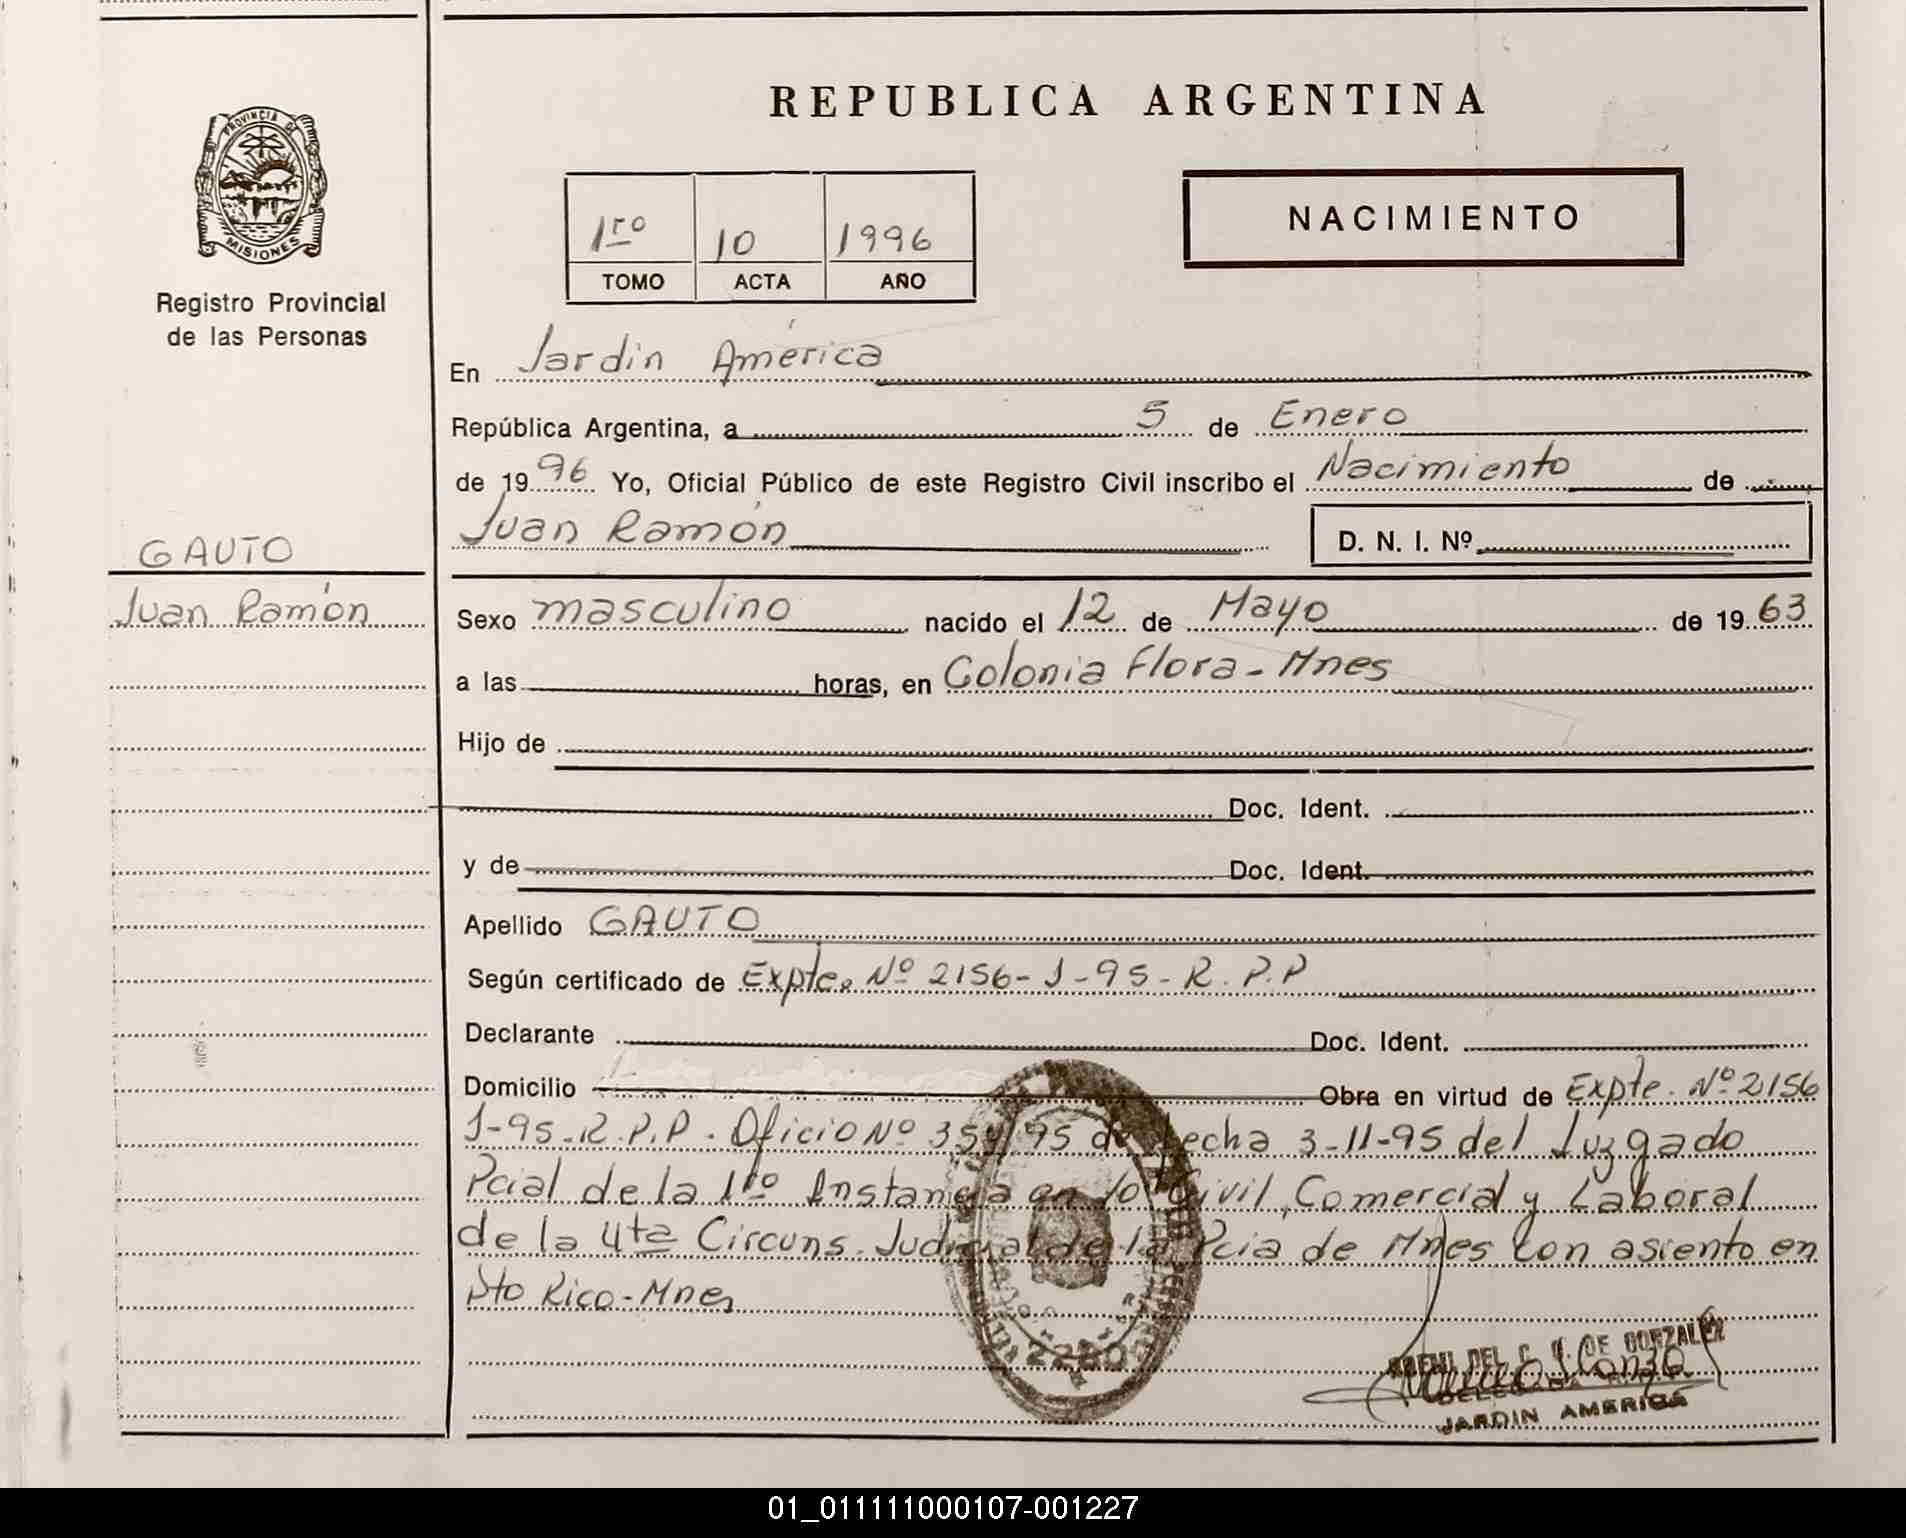 PROVINCIA DE
MISIONES
Registro Provincial
de las Personas
GAUTO
Juan Ramón
REPUBLICA ARGENTINA
1ro 10 1996
TOMO ACTA AÑO
NACIMIENTO
En Jardin América
República Argentina, a 5 de Enero
de 1996 Yo, Oficial Público de este Registro Civil inscribo el Nacimiento de
Juan Ramón D. N. I. Nº
Sexo masculino nacido el 12 de Mayo de 1963
a las horas, en Colonia Flora - Mnes
Hijo de
Doc. Ident.
y de Doc. Ident.
Apellido GAUTO
Según certificado de Expte. Nº 2156-J-95-R.P.P
Declarante Doc. Ident.
Domicilio Obra en virtud de Expte. Nº 2156
J-95-R.P.P. Oficio Nº 354/95 de fecha 3-11-95 del Juzgado
Pcial de la 1ro Instancia en lo Civil, Comercial y Laboral
de la 4ta Circuns. Judicial de la Pcia de Mnes con asiento en
Pto Rico - Mnes
DEL C. DE GONZALEZ
JARDIN AMERICA
01_011111000107-001227